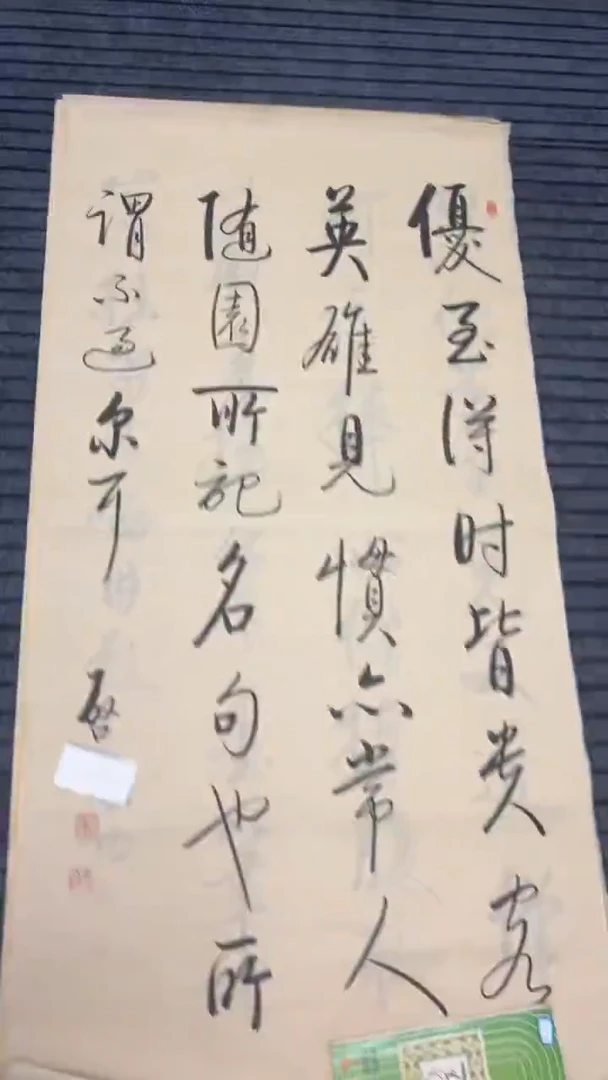 優孟得时皆贵客
英雄見慣亦常人
随園所記名句也所
謂不過尔耳
啓